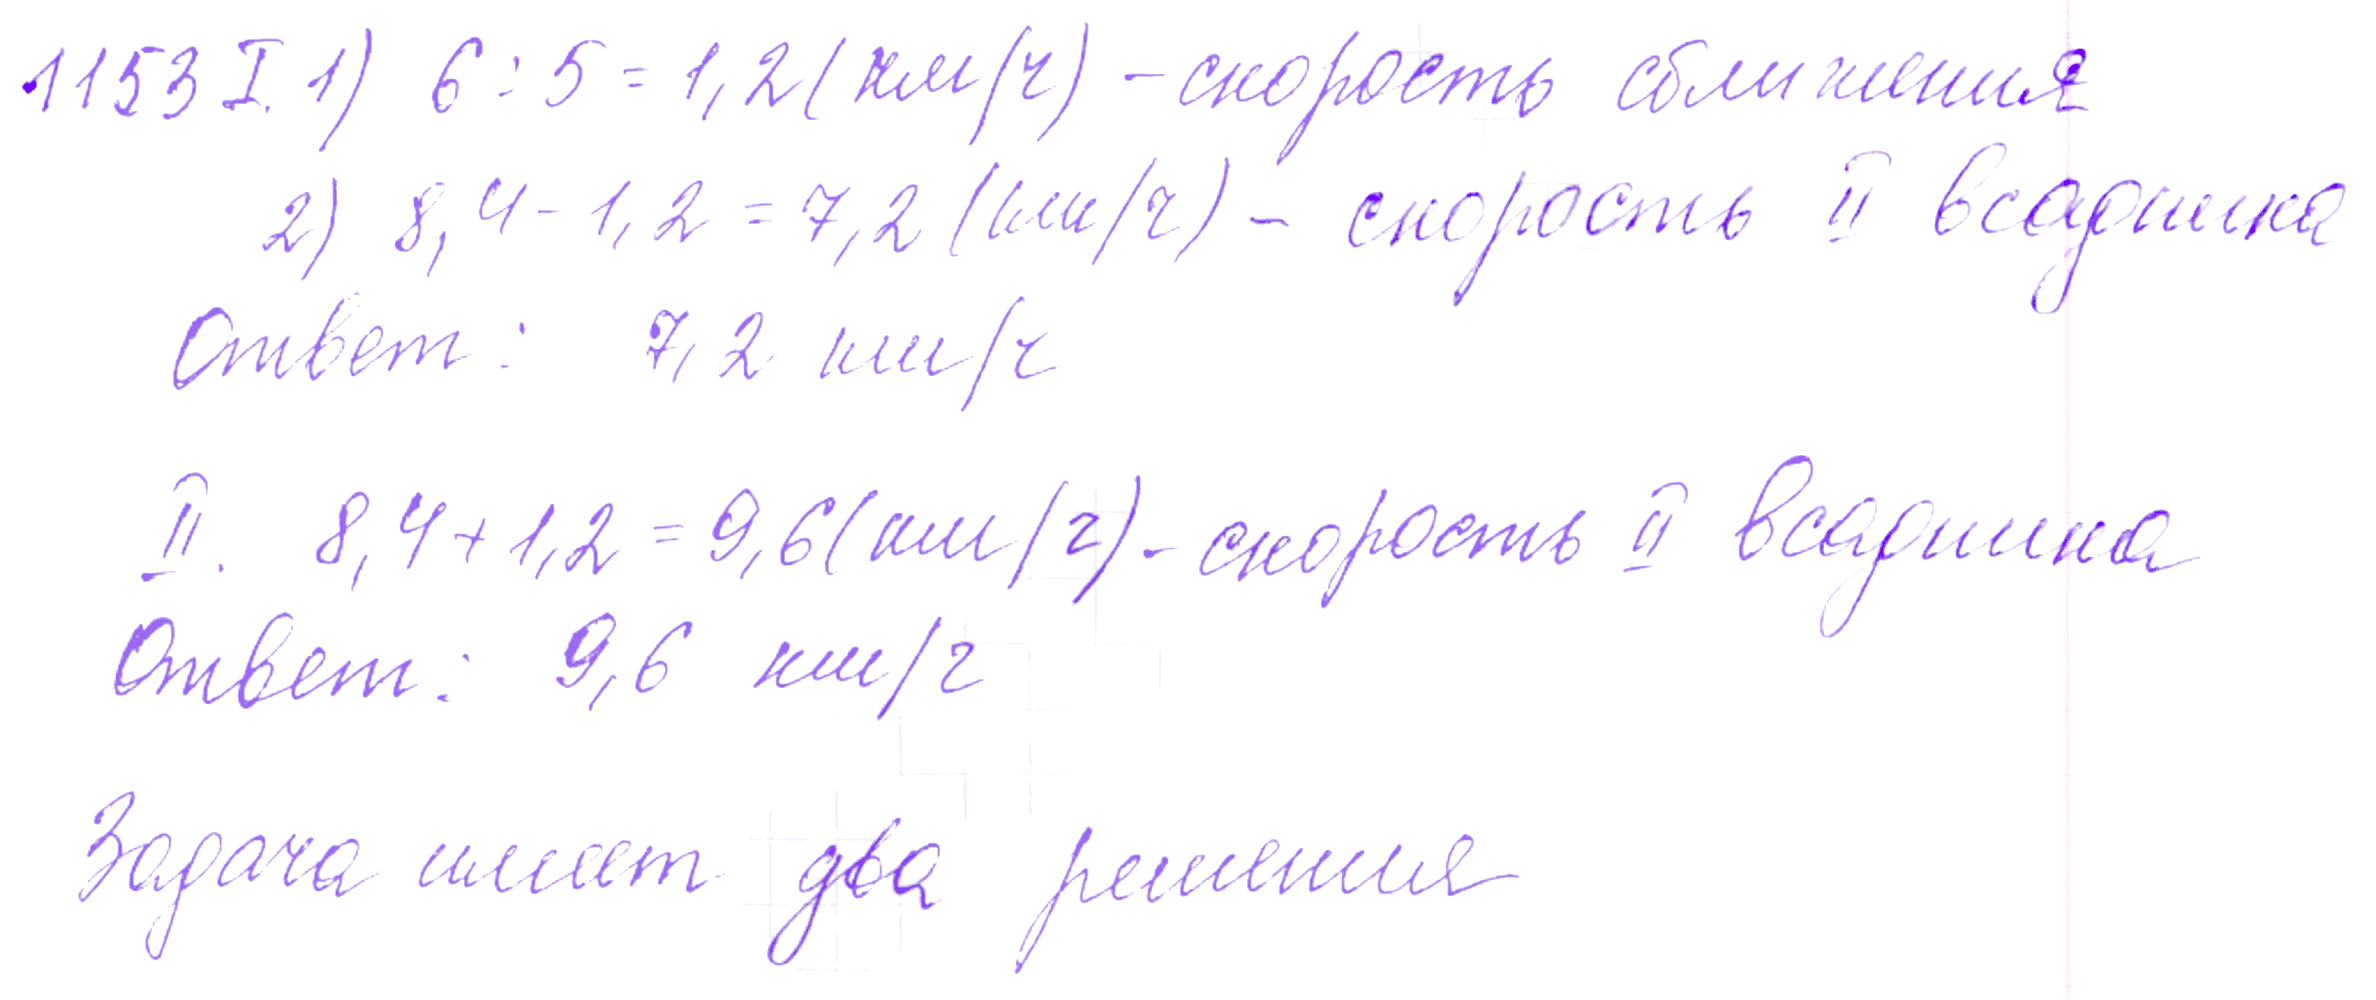 1153 I. 1) 6 : 5 = 1,2 (км/ч) - скорость сближения
2) 8,4 - 1,2 = 7,2 (км/ч) - скорость II всадника
Ответ: 7,2 км/ч
II. 8,4 + 1,2 = 9,6 (км/ч) - скорость II всадника
Ответ: 9,6 км/ч
Задача имеет два решения